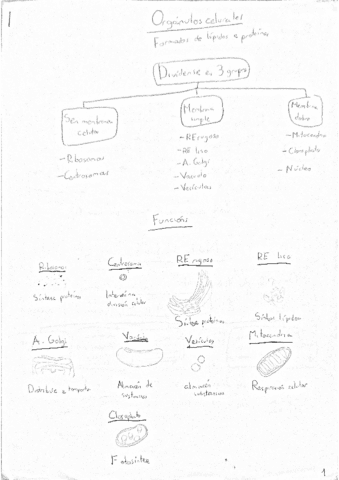 Orgánulos celulares
Formados de lípidos e proteínas
Divídense en 3 grupos
Sen membrana
celular
Membrana
simple
Membrana
doble
- Ribosomas
- Centrosomas
- RE rugoso
- RE liso
- A. Golgi
- Vacuola
- Vesículas
- Mitocondria
- Cloroplasto
- Núcleo
Función
Ribosomas
Centrosoma
RE rugoso
RE liso
Síntese proteínas
Intervén na
división celular
Síntese proteínas
Síntese lípidos
A. Golgi
Vacuola
Vesículas
Mitocondria
Distribúe e transporta
Almacén de
sustancias
almacén
sustancias
Respiración celular
Cloroplasto
Fotosíntese
1